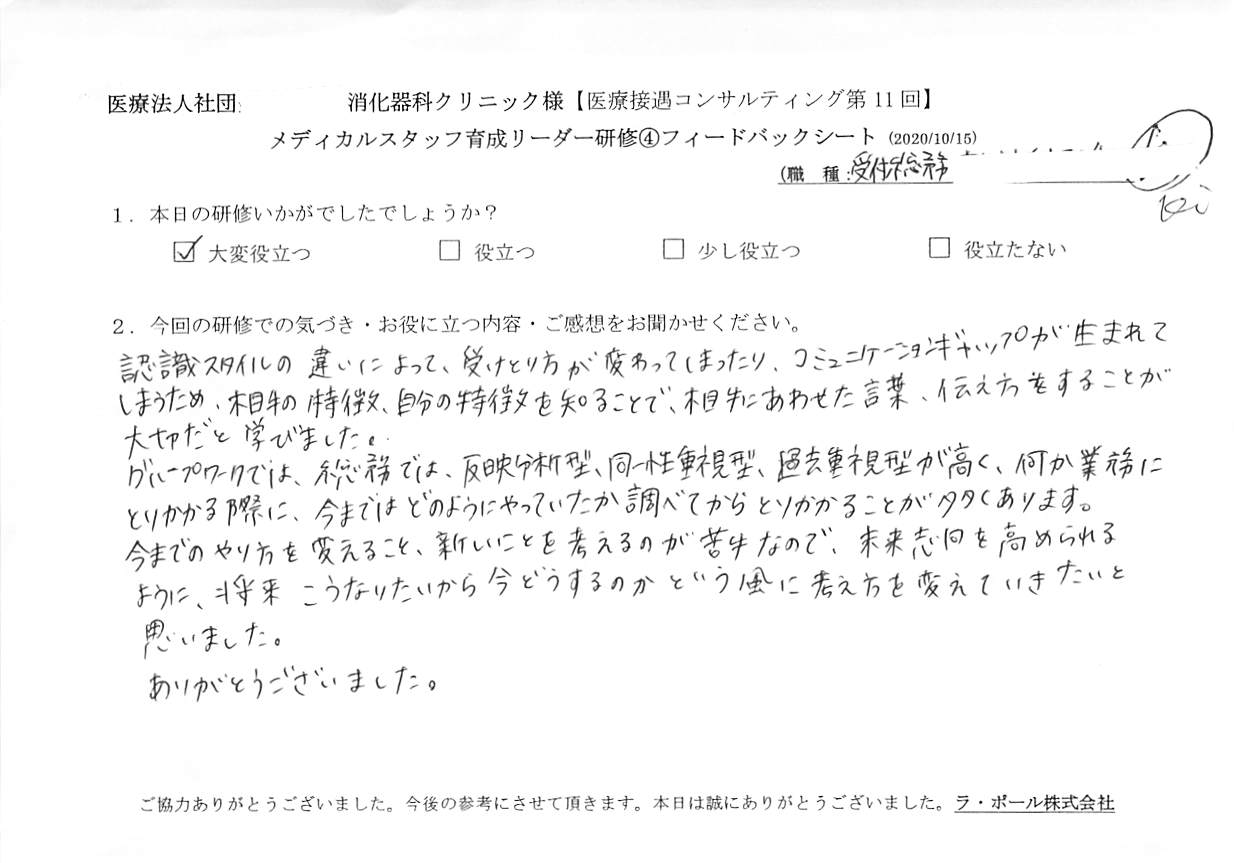 医療法人社団 消化器科クリニック様【医療接遇コンサルティング第 11 回】
メディカルスタッフ育成リーダー研修④フィードバックシート (2020/10/15)
(職 種:受付総務
1．本日の研修いかがでしたでしょうか？
☑ 大変役立つ □ 役立つ □ 少し役立つ □ 役立たない
2．今回の研修での気づき・お役に立つ内容・ご感想をお聞かせください。
認識スタイルの違いによって、受けとり方が変わってしまったり、コミュニケーションギャップが生まれて
しまうため、相手の特徴、自分の特徴を知ることで、相手にあわせた言葉、伝え方をすることが
大切だと学びました。
グループワークでは、総務では、反映分析型、同一性重視型、過去重視型が高く、何か業務に
とりかかる際に、今まではどのようにやっていたか調べてからとりかかることが多くあります。
今までのやり方を変えること、新しいことを考えるのが苦手なので、未来志向を高められる
ように、将来こうなりたいから今どうするのかという風に考え方を変えていきたいと
思いました。
ありがとうございました。
ご協力ありがとうございました。今後の参考にさせて頂きます。本日は誠にありがとうございました。ラ・ポール株式会社